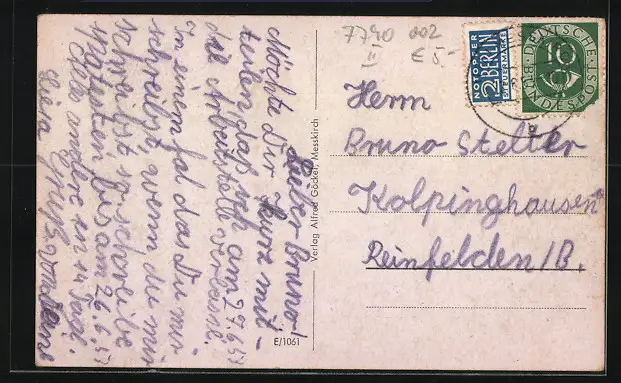 7790 002
II € 5.-
NOTOPFER
2 BERLIN
STEUERMARKE
DEUTSCHE
10
BUNDESPOST
Herrn
Bruno Stelter
Kolpinghausen
Reinfelden/B.
Verlag Alfred Göckel, Messkirch
E/1061
Lieber Bruno!
Möchte Dir kurz mit-
teilen daß ich am 27.6.53
die Arbeitstelle verlasse.
In einem fal das Du mir
schreibst wenn du mir
schreibst so schreibe
spätesten bis am 26.6.53
das andere in 14 Tage.
Viele Grüße von deine